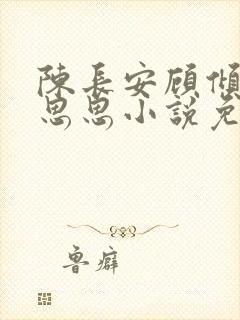 陳長安顧傾
思思小說免
魯癖